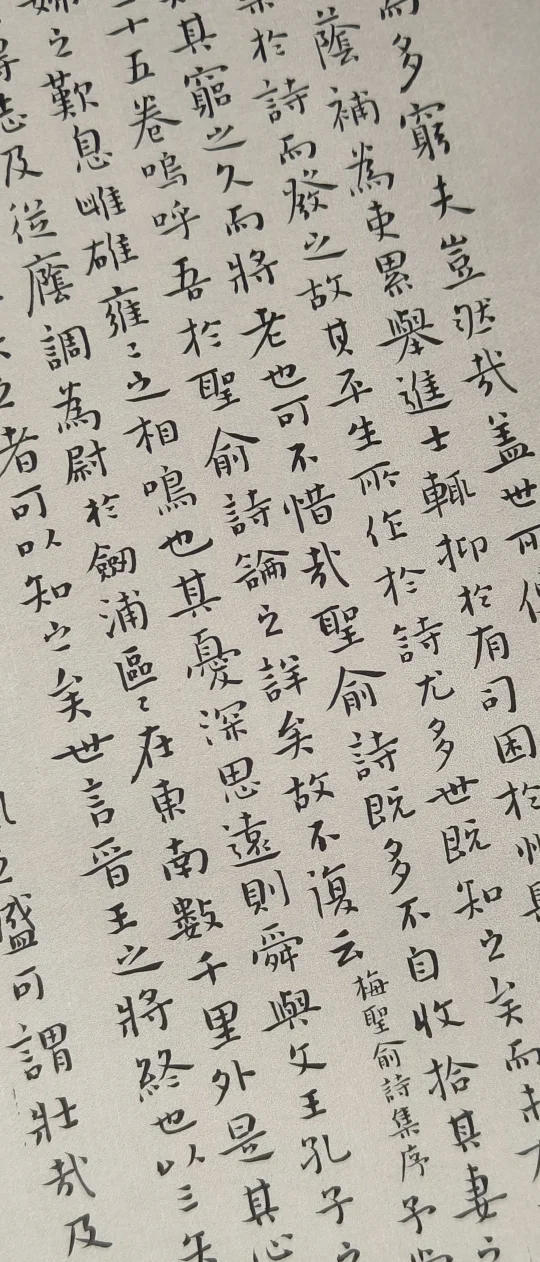 而多窮夫豈然哉蓋世所傳
蔭補為吏累舉進士輒抑於有司困於州縣
於詩而發之故其平生所作於詩尤多世既知之矣而未
其窮之久而將老也可不惜哉聖俞詩既多不自收拾其妻之
十五卷嗚呼吾於聖俞詩論之詳矣故不復云 梅聖俞詩集序 予嘗
之歎息雌雄雍〻之相鳴也其憂深思遠則舜與文王孔子之
得志及從廕調為尉於劒浦區〻在東南數千里外是其心
之者可以知之矣世言晉王之將終也以三矢
之盛可謂壯哉及